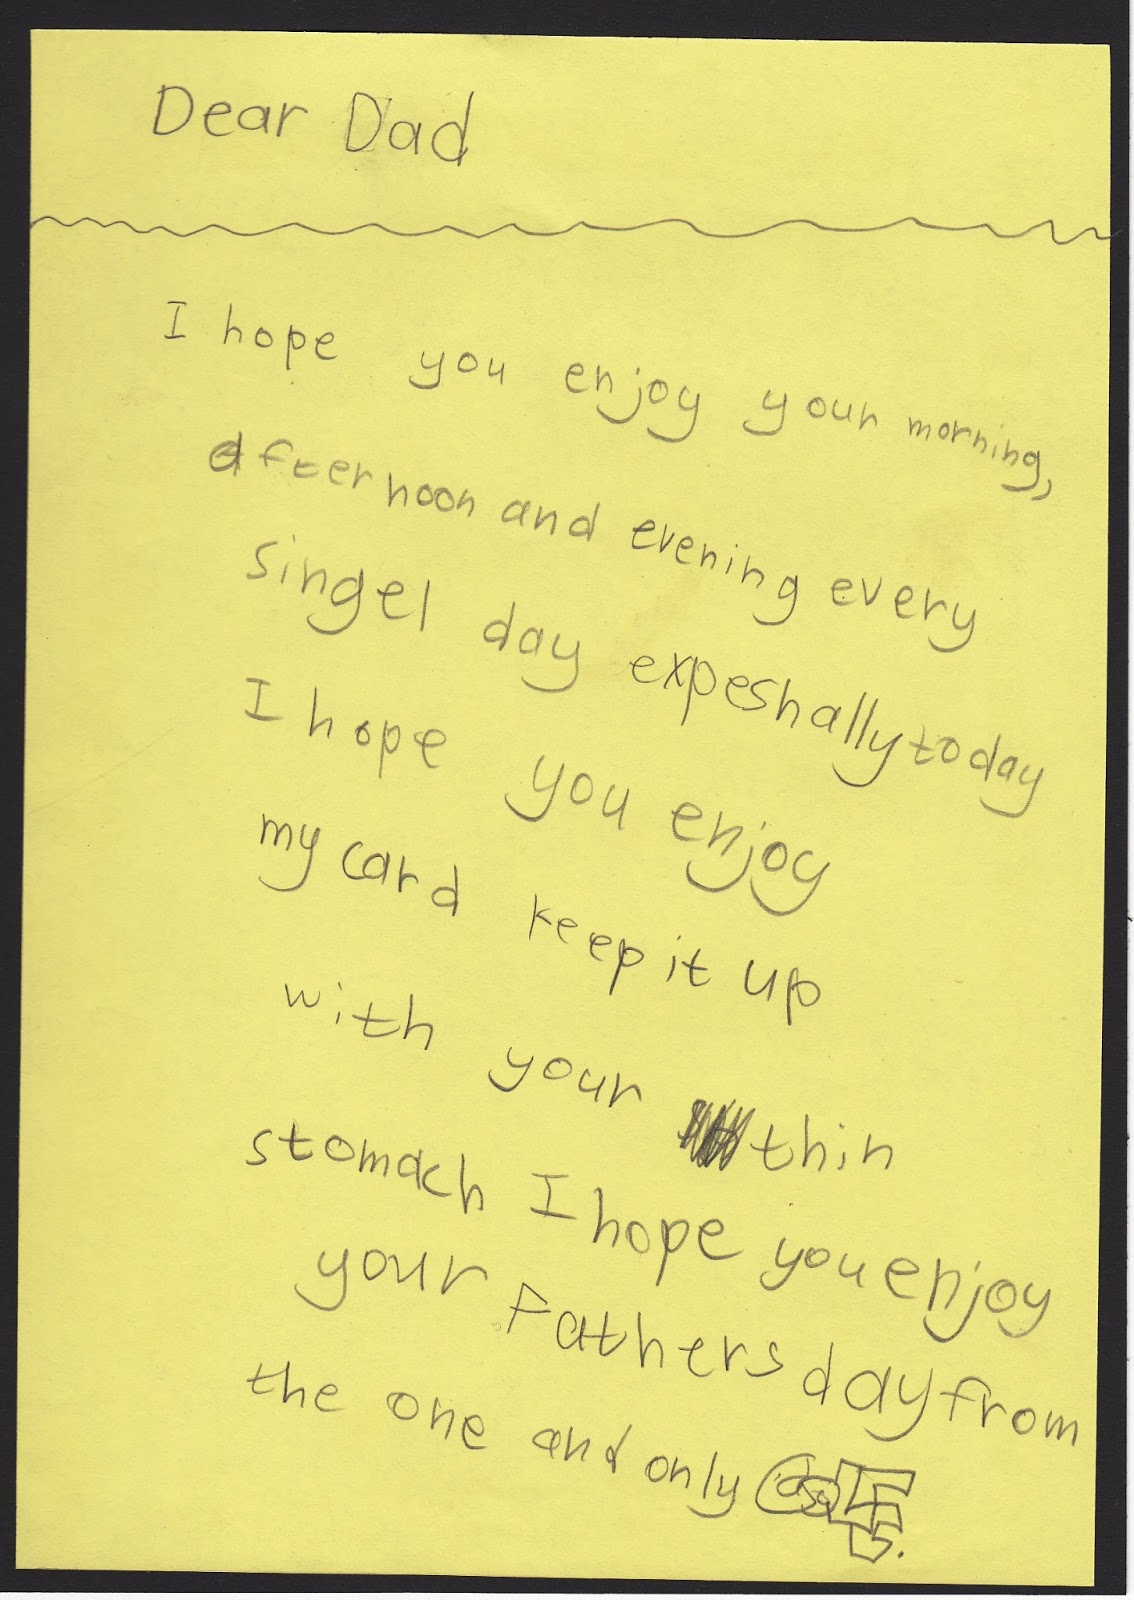 Dear Dad
I hope you enjoy your morning,
afternoon and evening every
singel day expeshally today
I hope you enjoy
my card keep it up
with your thin
stomach I hope you enjoy
your Fathers day from
the one and only